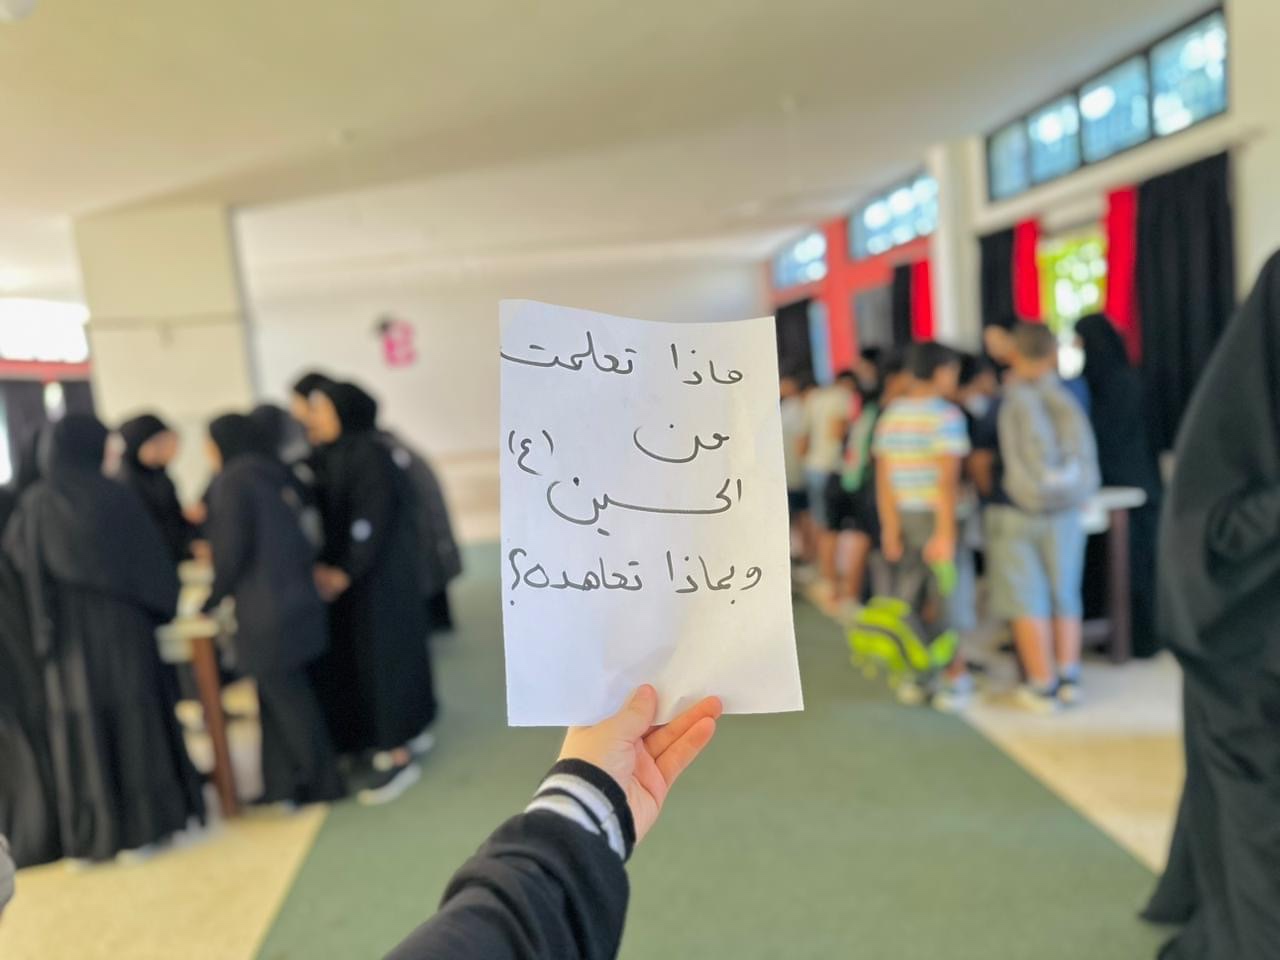 ماذا تعلمت
من (ع)
الحسين
وبماذا تعاهده؟